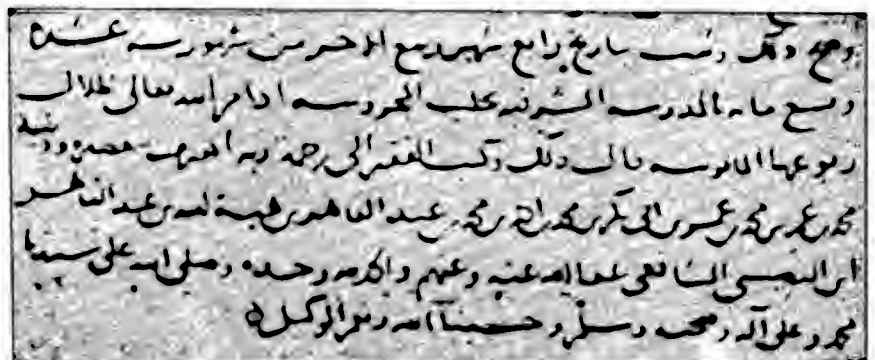 وصح ذلك وثبت بتاريخ رابع شهر ربيع الآخر من شهور سنة عشرة
وتسع مايه بالمدرسة الشرفيه بحلب المحروسه ادام الله تعالى ظلال
ربوعها المانوسه قال ذلك وكتب الفقير الى رحمة ربه
محمد بن عمر بن محمد بن ابى بكر بن محمد بن محمد بن عبد القاهر بن هبة الله بن عبد القاهر
ابن النصيبى الشافعى عفا الله عنه وعنهم والحمد لله وحده وصلى الله على سيدنا
محمد وعلى آله وصحبه وسلم وحسبنا الله ونعم الوكيل